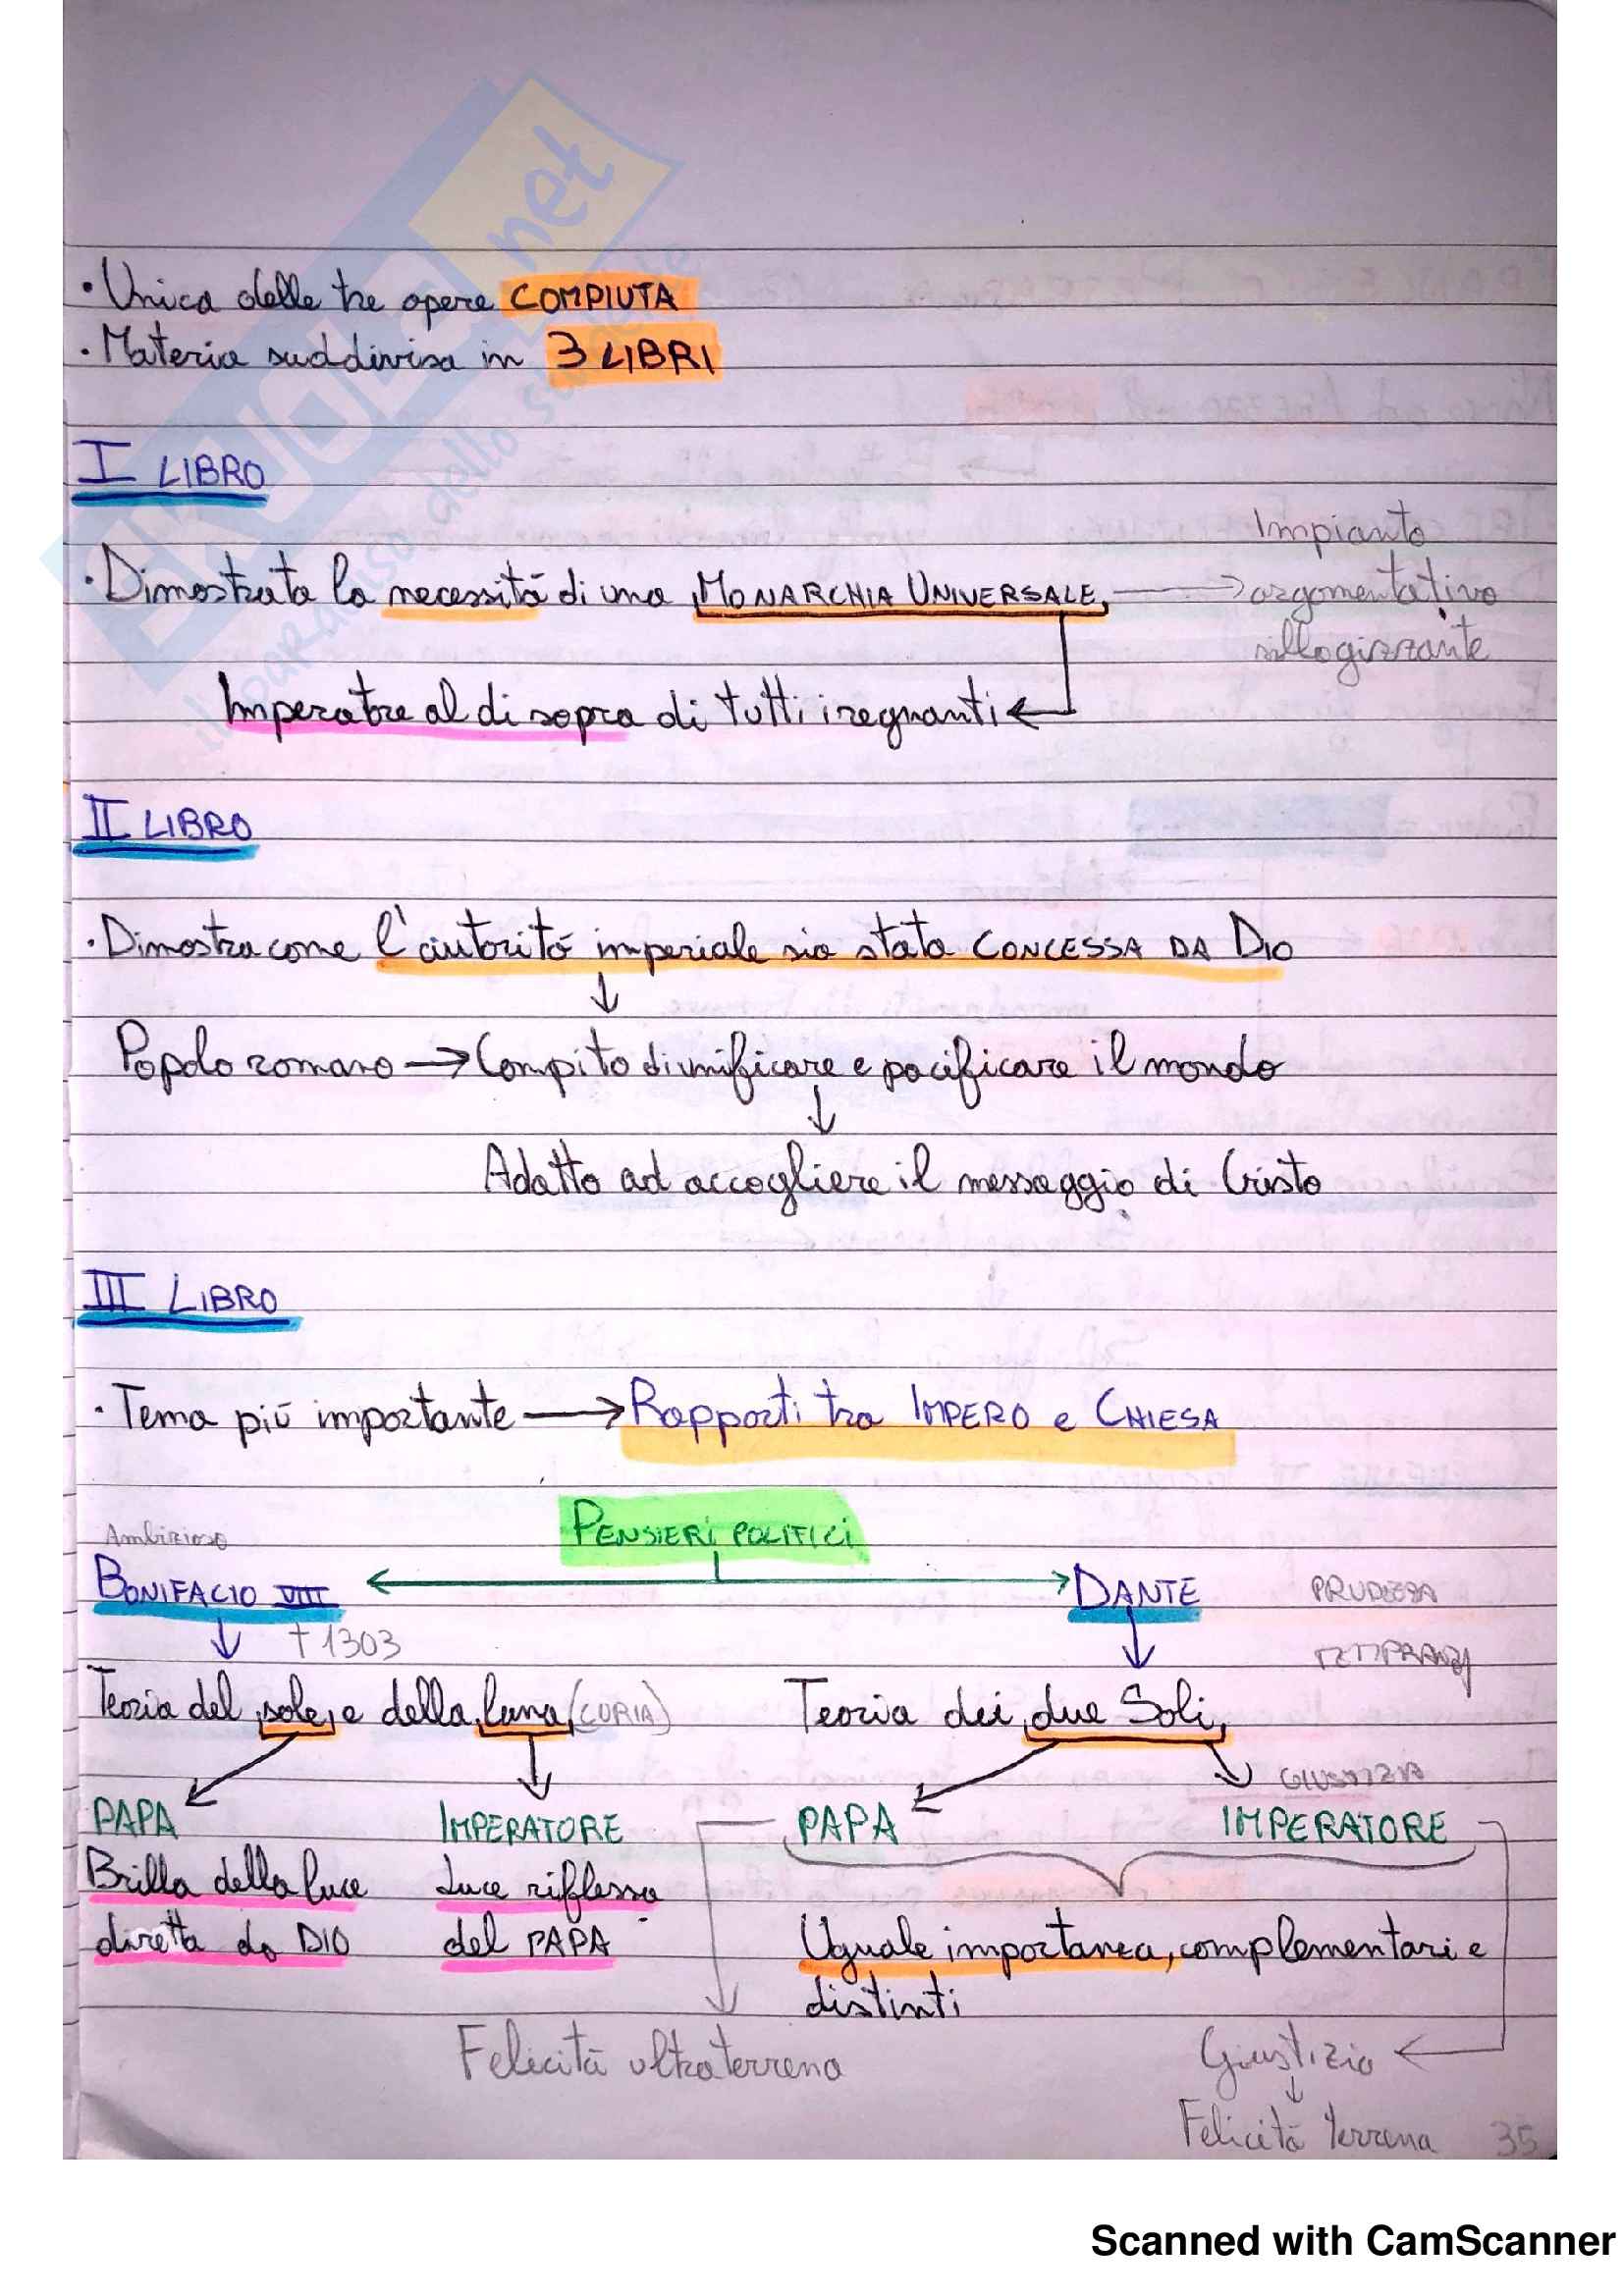 • Unica delle tre opere COMPIUTA
• Materia suddivisa in 3 LIBRI
I LIBRO
Impianto
• Dimostrata la necessità di una MONARCHIA UNIVERSALE → argomentativo
sillogizzante
Imperatore al di sopra di tutti i regnanti ←
II LIBRO
• Dimostra come l'autorità imperiale sia stata CONCESSA DA DIO
↓
Popolo romano → Compito di unificare e pacificare il mondo
↓
Adatto ad accogliere il messaggio di Cristo
III LIBRO
• Tema più importante → Rapporti tra IMPERO e CHIESA
PENSIERI POLITICI
Ambizioso
BONIFACIO VIII ← → DANTE
† 1303
Teoria del sole e della luna (CURIA) Teoria dei due Soli
GIUSTIZIA
PAPA IMPERATORE PAPA IMPERATORE
Brilla della luce Luce riflessa
diretta da DIO del PAPA Uguale importanza, complementari e
distinti
Felicità ultraterrena Giustizia ←
↓
Felicità terrena 35
Scanned with CamScanner
SKUOLA.net
il paradiso dello studente